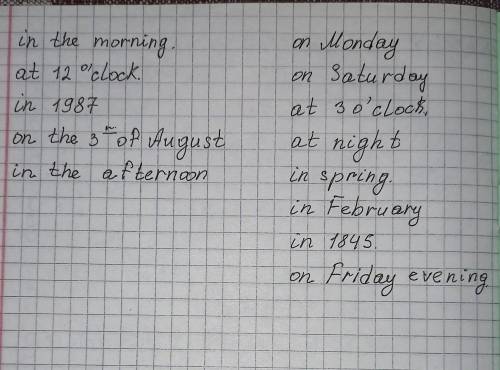 in the morning.
at 12 o'clock.
in 1987
on the 3 of August
in the afternoon
on Monday
on Saturday
at 3 o'clock.
at night
in spring.
in February
in 1845.
on Friday evening.